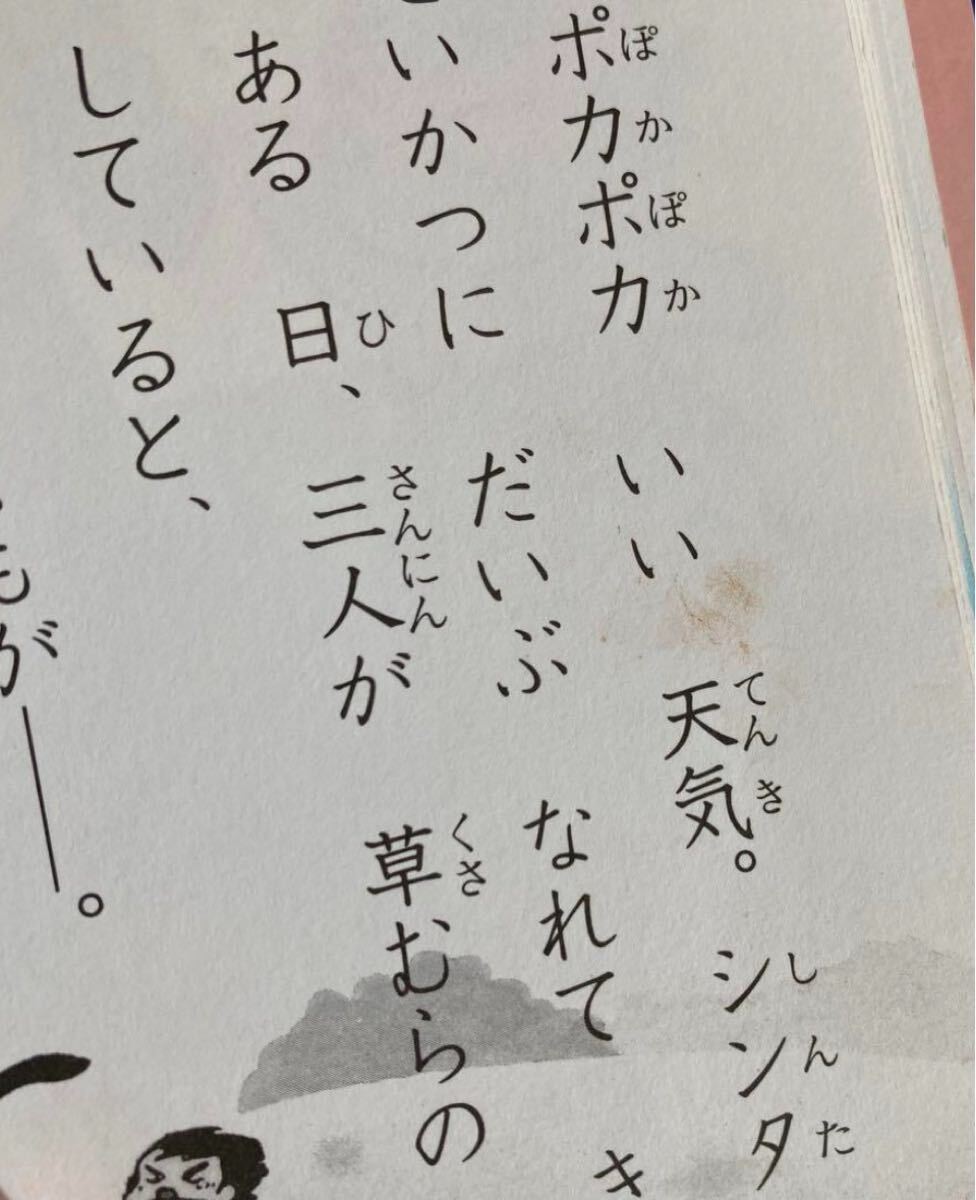 ポカポカ いい 天気。 シンタ
いかつに だいぶ なれて キ
ある 日、 三人が 草むらの
していると、
もが——。